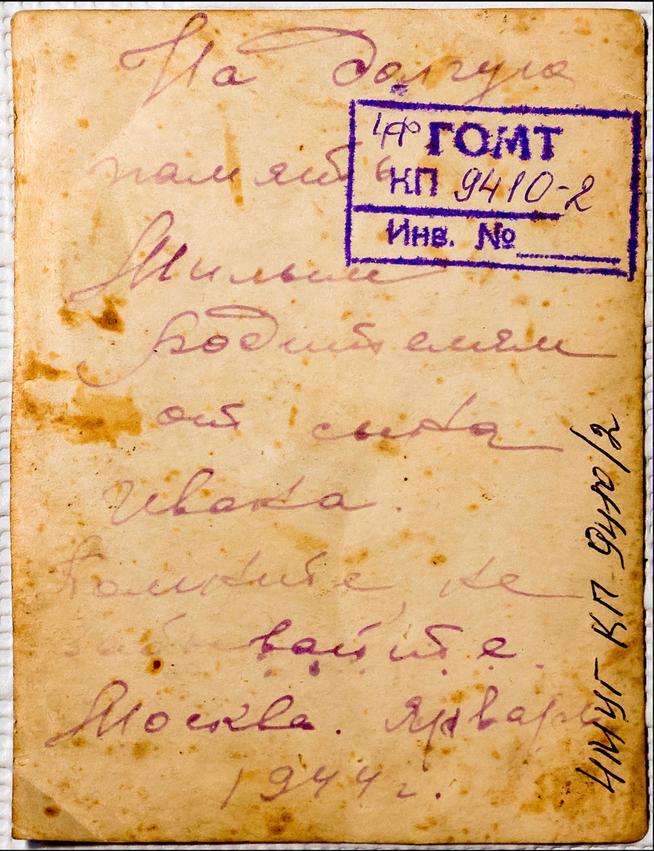 На долгую
память
Милым
родителям
от сына
Ивана.
Помните, не
забывайте.
Москва. Январь
1944 г.
ЧФ ГОМТ
КП 9410-2
Инв. №
КП 9410/2